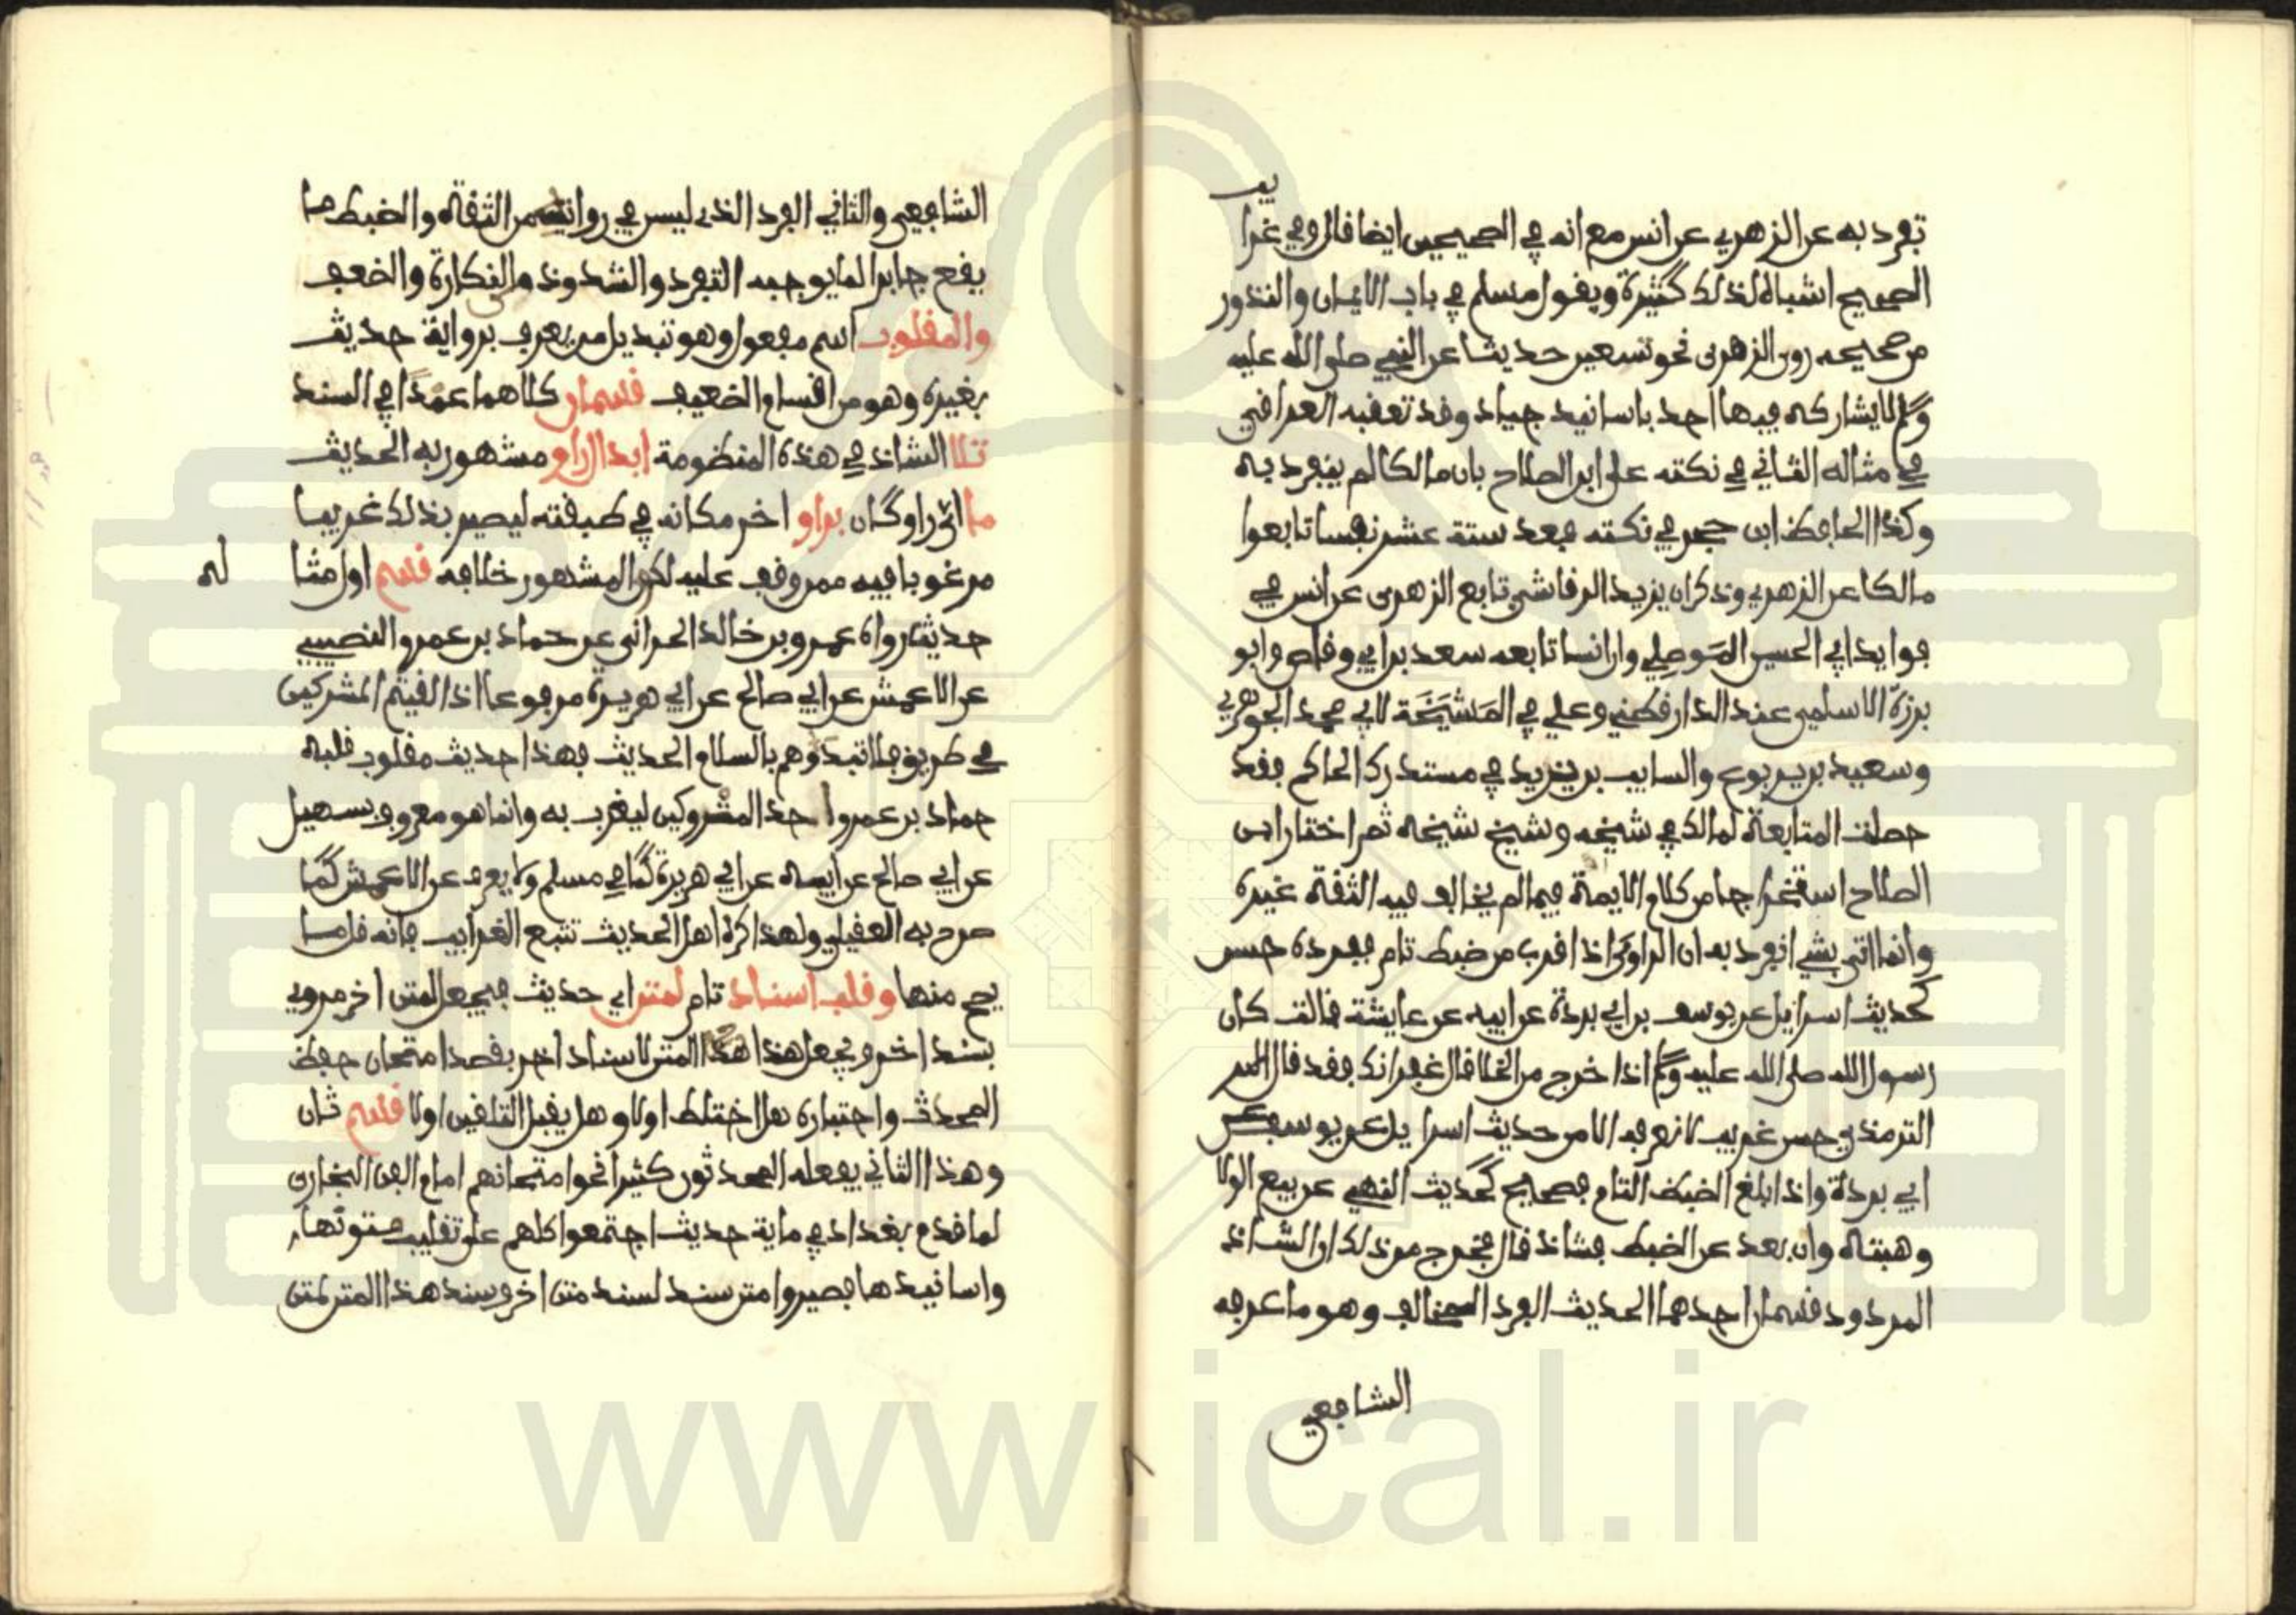 تفرد به عن الزهري عن انس مع انه في الصحيحين ايضا قال وفي غرا
يب
الصحيح اشباه لذلك كثيرة ويقول مسلم في باب الايمان والنذور
من صحيحه روى الزهري نحو تسعين حديثا عن النبي صلى الله عليه
وسلم لا يشاركه فيها احد باسانيد جياد وقد تعقبه العراقي
في مثاله الثاني في نكته على ابن الصلاح بان مالكا لم ينفرد به
وكذا الحافظ ابن حجر في نكته فعد ستة عشر نفسا تابعوا
مالكا عن الزهري وذكر ان يزيد الرقاشي تابع الزهري عن انس في
فوايد ابي الحسين الموصلي وان انسا تابعه سعد بن ابي وقاص وابو
برزة الاسلمي عند الدارقطني وعلي في المَشْيَخَة لابي محمد الجوهري
وسعيد بن يربوع والسايب بن يزيد في مستدرك الحاكم فقد
حصلت المتابعة لمالك في شيخه وشيخ شيخه ثم اختار ابن
الصلاح استخراجا من كلام الايمة فيما لم يخالف فيه الثقة غيره
وانما اتى بشي انفرد به ان الراوي اذا قرب من ضبط تام ففرده حسن
كحديث اسراييل عن يوسف بن ابي بردة عن ابيه عن عايشة قالت كان
رسول الله صلى الله عليه وسلم اذا خرج من الخلا قال غفرانك فقد قال فيه
الترمذي حسن غريب لا نعرفه الا من حديث اسراييل عن يوسف بن
ابي بردة واذا بلغ الضبط التام فصحيح كحديث النهي عن بيع الولا
وهبته وان بعد عن الضبط فشاذ قال فخرج من ذلك ان الشاذ
المردود قسمان احدهما الحديث الفرد المخالف وهو ما عرفه
الشافعي
الشافعي والثاني الفرد الذي ليس في رواته من الثقة والضبط ما
يقع جابرا لما يوجبه التفرد والشذوذ من النكارة والضعف
والمقلوب اسم مفعول وهو تبديل من يعرف برواية حديث
بغيره وهو من اقسام الضعيف قسمان كلاهما عمدا في السند
تلا الشاذ في هذه المنظومة ابدال راو مشهور به الحديث
ما اي راو كان براو اخر مكانه في طبقته ليصير بذلك غريبا
مرغوبا فيه ممن وقف عليه لكون المشهور خلافه قسم اول مثا
له
حديث رواه عمرو بن خالد الحراني عن حماد بن عمرو النصيبي
عن الاعمش عن ابي صالح عن ابي هريرة مرفوعا اذا لقيتم المشركين
في طريق فلا تبدوهم بالسلام الحديث فهذا حديث مقلوب قلبه
حماد بن عمرو احد المتروكين ليغرب به وانما هو معروف بسهيل
عن ابي صالح عن ابيه عن ابي هريرة كما في مسلم ولا يعرف عن الاعمش كما
صرح به العقيلي ولهذا كره اهل الحديث تتبع الغرايب فانه قل ما
يصح منها وقلب اسناد تام لمتن اي حديث فيجعل لمتن اخر مروي
بسند اخر ويجعل هذا المتن لاسناد اخر بقصد امتحان حفظ
المحدث واختباره هل اختلط اولا وهل يقبل التلقين اولا قسم ثان
وهذا الثاني يفعله المحدثون كثيرا نحو امتحانهم امام الفن البخاري
لما قدم بغداد في ماية حديث اجتمعوا كلهم على تقليب متونها
واسانيدها فصيروا متن سند لسند متن اخر وسند هذا المتن لمتن
www.ical.ir